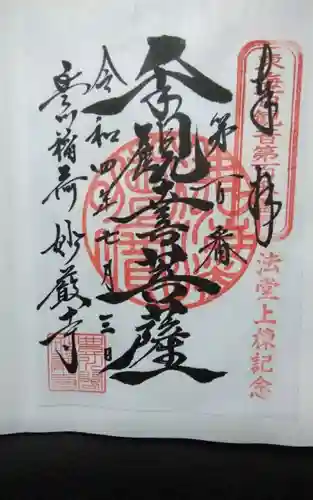 奉拝
東海百観音第百
法堂上棟記念
第百番
千手観音菩薩
令和四年七月三日
豊川稲荷 妙嚴寺